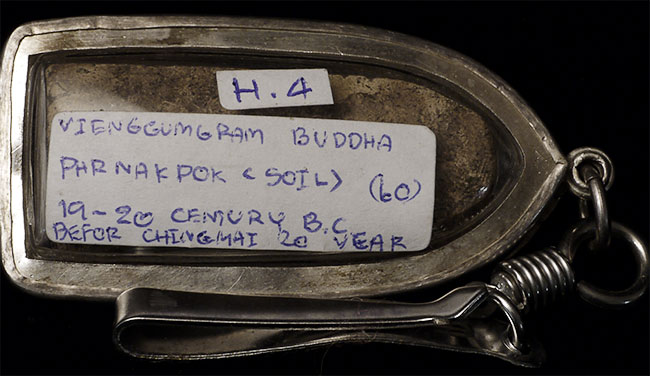 H.4
VIENGGUMGRAM BUDDHA
PHRNAKPOK <SOIL> (60)
19-20 CENTURY B.C.
BEFOR CHINGMAI 20 YEAR